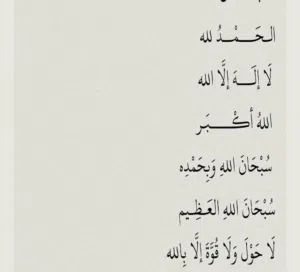 الـحَـمْـدُ لله
لَا إِلَـــهَ إِلَّا الله
اللهُ أَكْـــبَـر
سُبْحَانَ اللهِ وَبِحَمْدِه
سُبْحَانَ اللهِ العَـظِـيم
لَا حَوْلَ وَلَا قُوَّةَ إِلَّا بِالله